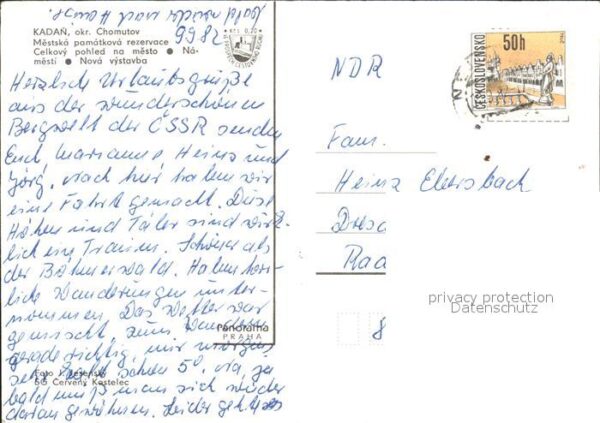 KADAŇ, okr. Chomutov
Městská památková rezervace
Celkový pohled na město • Ná-
městí • Nová výstavba
KČS 0,20
Herzliche Urlaubsgrüße
aus der wunderschönen
Bergwelt der ČSSR senden
Euch, Marianne, Heinz und
Jörg. Auch hier haben wir
eine Fahrt gemacht. Diese
Höhen und Täler sind wirk-
lich ein Traum. Schöner als
der Böhmerwald. Haben herr-
liche Wanderungen unter-
nommen. Das Wetter war
gemischt, zum Wandern
gerade richtig, nur morgens
schon 5°.
bald muß man sich wieder
daran gewöhnen. Leider geht es
bald wieder nach Hause.
Panorama
PRAHA
Foto J.
SG Červený Kostelec
ČESKOSLOVENSKO
50h
NDR
Fam.
Heinz Ebersbach
Raa
8
privacy protection
Datenschutz